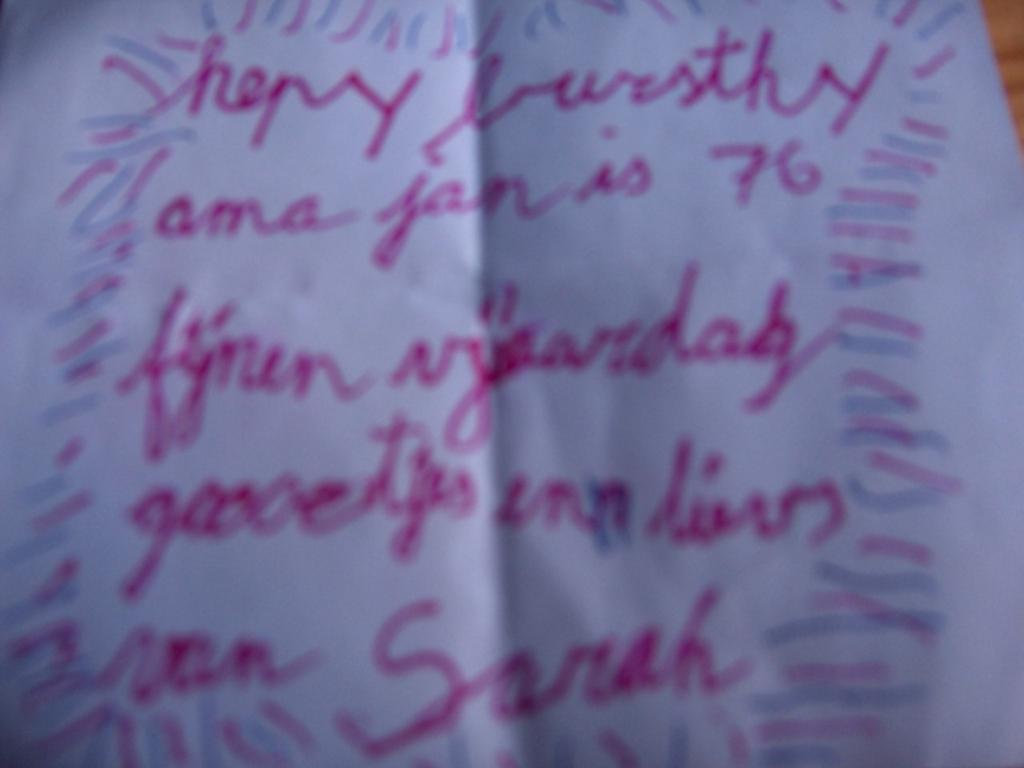 hepy bursthy
ama jan is 76
fijnen vjaardag
groetjes enn lievs
van Sarah